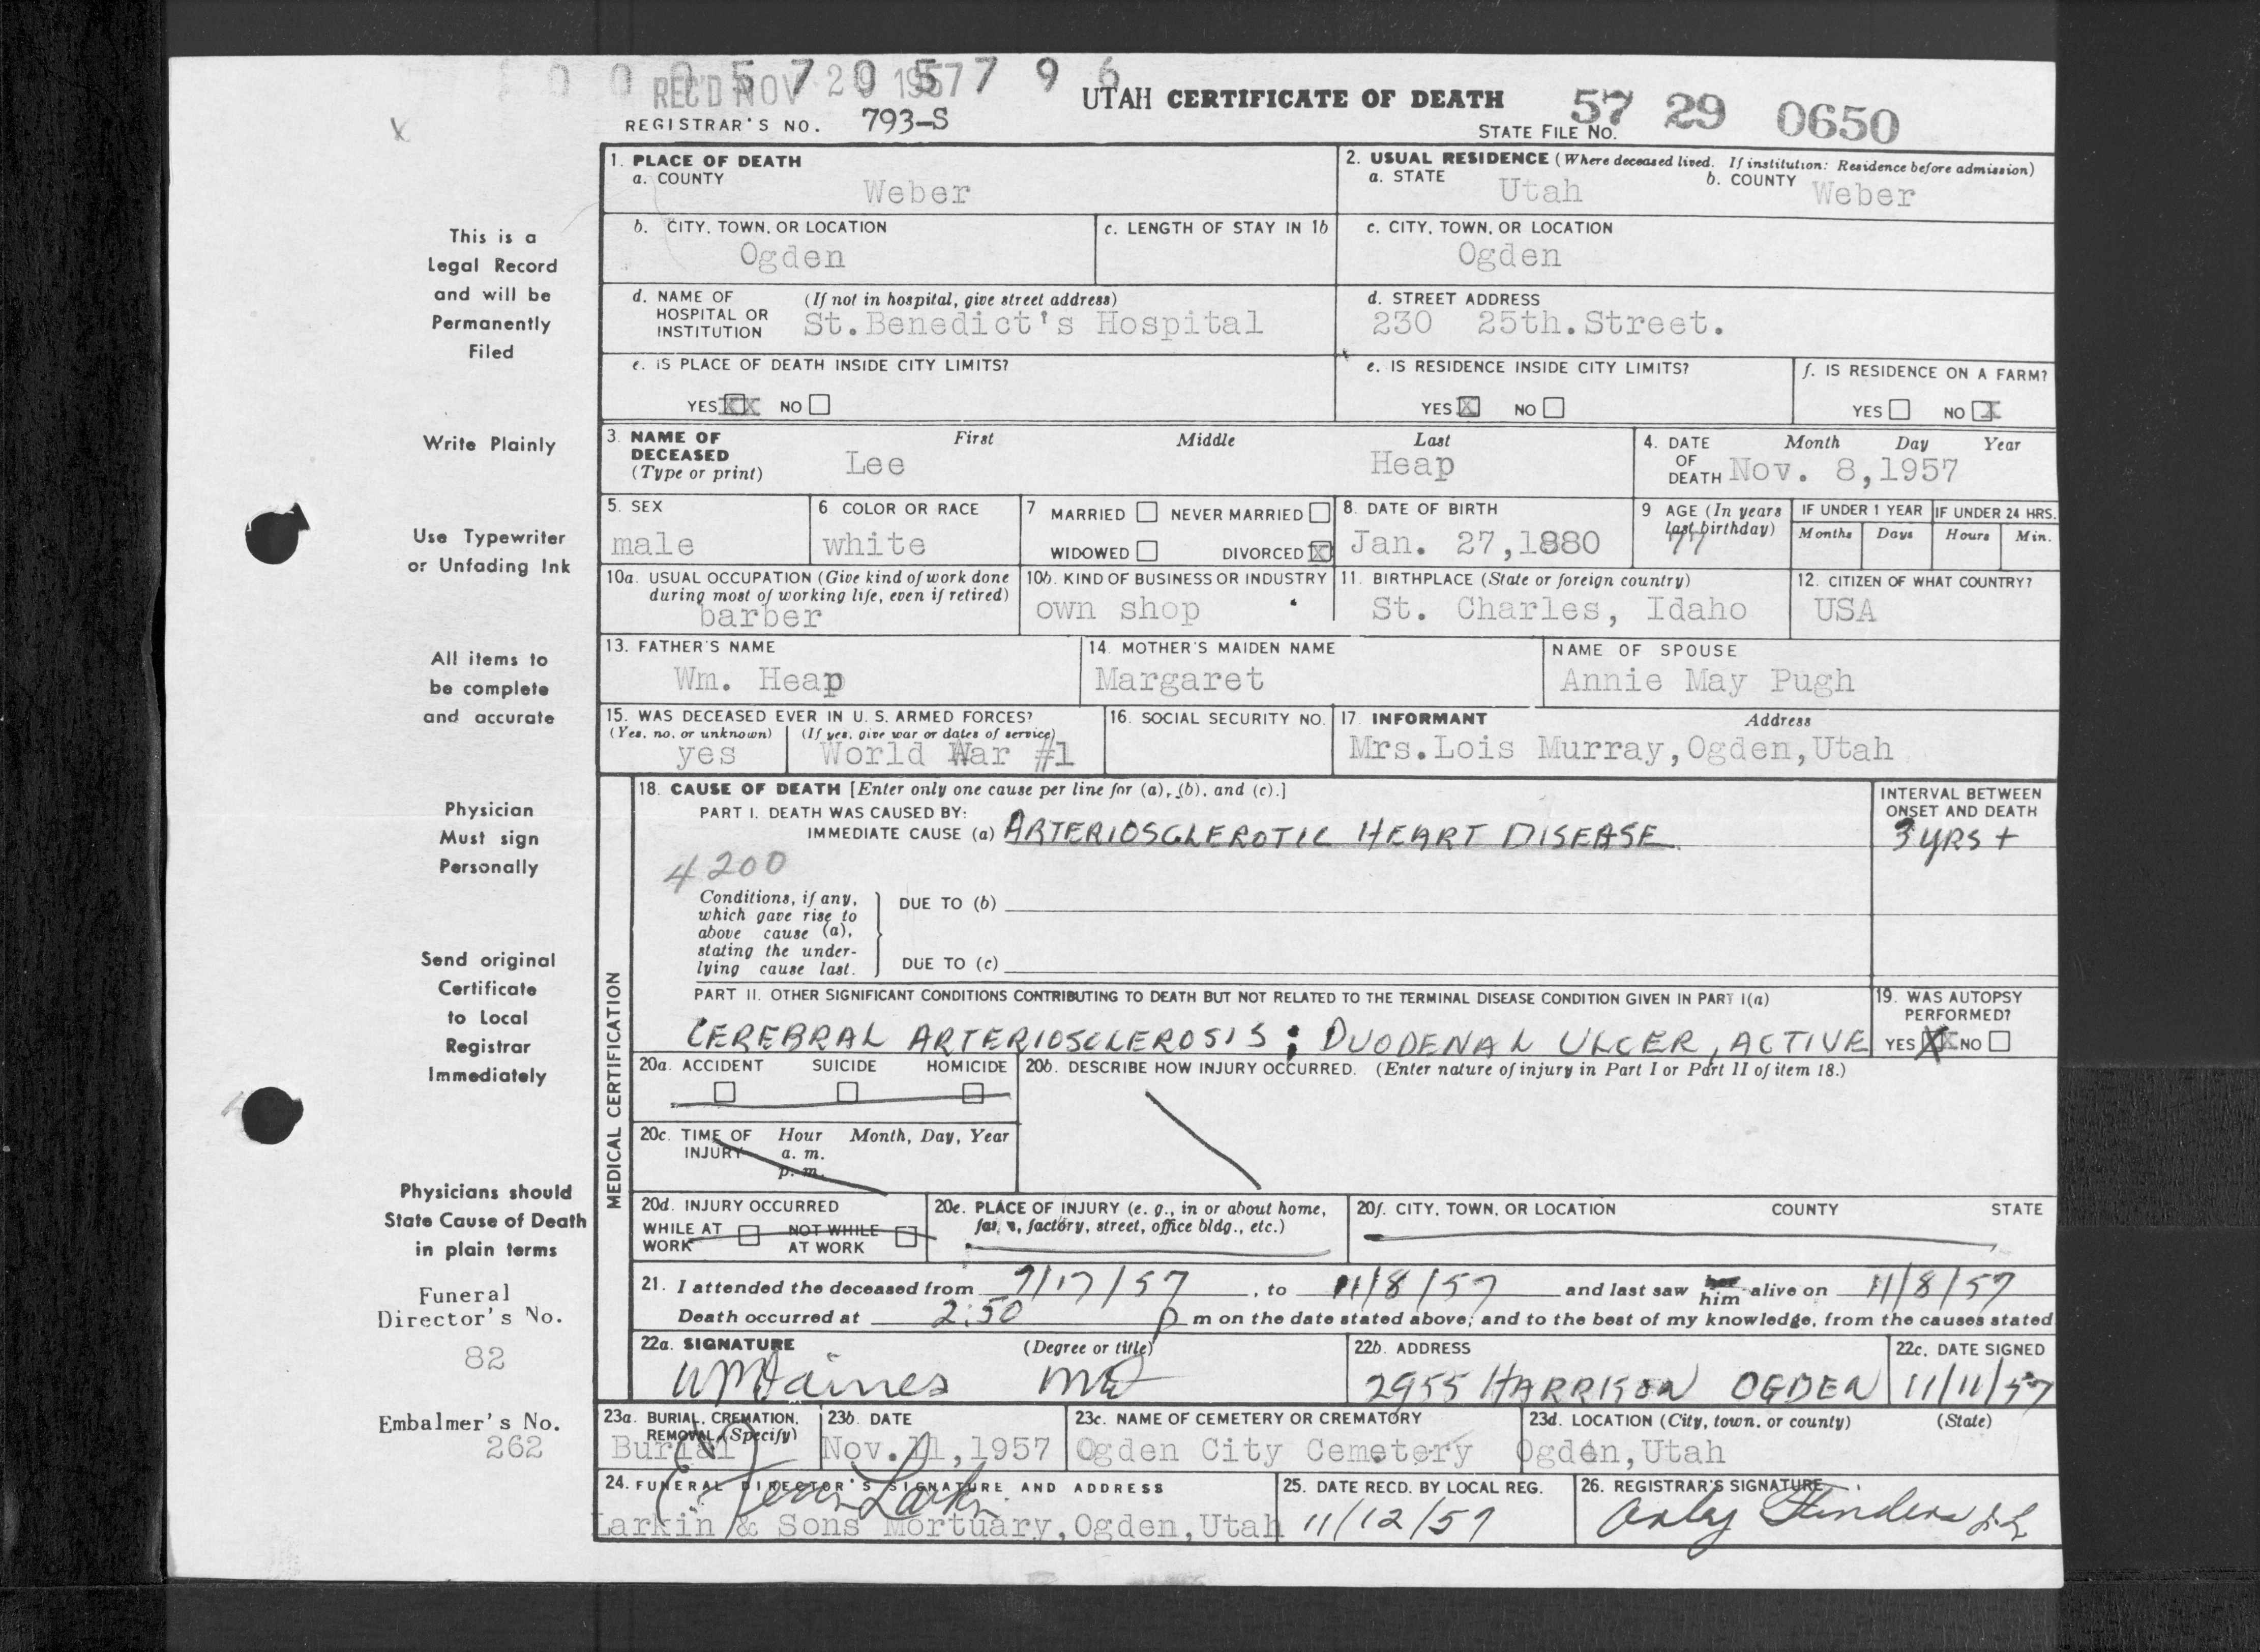 REC'D NOV 20 1957
0 0 0 5 7 0 5 7 9 6
UTAH CERTIFICATE OF DEATH
REGISTRAR'S NO. 793-S
STATE FILE NO. 57 29 0650
This is a
Legal Record
and will be
Permanently
Filed
Write Plainly
Use Typewriter
or Unfading Ink
All items to
be complete
and accurate
Physician
Must sign
Personally
Send original
Certificate
to Local
Registrar
Immediately
Physicians should
State Cause of Death
in plain terms
Funeral
Director's No.
82
Embalmer's No.
262
1. PLACE OF DEATH
a. COUNTY
Weber
2. USUAL RESIDENCE (Where deceased lived. If institution: Residence before admission)
a. STATE Utah b. COUNTY Weber
b. CITY, TOWN, OR LOCATION
Ogden
c. LENGTH OF STAY IN 1b
c. CITY, TOWN, OR LOCATION
Ogden
d. NAME OF HOSPITAL OR INSTITUTION (If not in hospital, give street address)
St.Benedict's Hospital
d. STREET ADDRESS
230 25th.Street.
e. IS PLACE OF DEATH INSIDE CITY LIMITS?
YES XX NO
e. IS RESIDENCE INSIDE CITY LIMITS?
YES X NO
f. IS RESIDENCE ON A FARM?
YES NO X
3. NAME OF DECEASED (Type or print) First Middle Last
Lee Heap
4. DATE OF DEATH Month Day Year
Nov. 8,1957
5. SEX
male
6. COLOR OR RACE
white
7 MARRIED NEVER MARRIED
WIDOWED DIVORCED X
8. DATE OF BIRTH
Jan. 27,1880
9 AGE (In years last birthday)
77
IF UNDER 1 YEAR
Months Days
IF UNDER 24 HRS.
Hours Min.
10a. USUAL OCCUPATION (Give kind of work done during most of working life, even if retired)
barber
10b. KIND OF BUSINESS OR INDUSTRY
own shop
11. BIRTHPLACE (State or foreign country)
St. Charles, Idaho
12. CITIZEN OF WHAT COUNTRY?
USA
13. FATHER'S NAME
Wm. Heap
14. MOTHER'S MAIDEN NAME
Margaret
NAME OF SPOUSE
Annie May Pugh
15. WAS DECEASED EVER IN U. S. ARMED FORCES?
(Yes, no, or unknown) (If yes, give war or dates of service)
yes World War #1
16. SOCIAL SECURITY NO.
17. INFORMANT Address
Mrs.Lois Murray,Ogden,Utah
MEDICAL CERTIFICATION
18. CAUSE OF DEATH [Enter only one cause per line for (a), (b), and (c).]
PART I. DEATH WAS CAUSED BY:
IMMEDIATE CAUSE (a) ARTERIOSCLEROTIC HEART DISEASE
INTERVAL BETWEEN
ONSET AND DEATH
3 YRS +
4200
Conditions, if any,
which gave rise to
above cause (a),
stating the under-
lying cause last.
DUE TO (b)
DUE TO (c)
PART II. OTHER SIGNIFICANT CONDITIONS CONTRIBUTING TO DEATH BUT NOT RELATED TO THE TERMINAL DISEASE CONDITION GIVEN IN PART I(a)
CEREBRAL ARTERIOSCLEROSIS; DUODENAL ULCER, ACTIVE
19. WAS AUTOPSY
PERFORMED?
YES X NO
20a. ACCIDENT SUICIDE HOMICIDE
20b. DESCRIBE HOW INJURY OCCURRED. (Enter nature of injury in Part I or Part II of item 18.)
20c. TIME OF INJURY Hour Month, Day, Year
a. m.
p. m.
20d. INJURY OCCURRED
WHILE AT WORK NOT WHILE AT WORK
20e. PLACE OF INJURY (e. g., in or about home,
farm, factory, street, office bldg., etc.)
20f. CITY, TOWN, OR LOCATION COUNTY STATE
21. I attended the deceased from 7/17/57, to 11/8/57 and last saw her him alive on 11/8/57
Death occurred at 2:50 P m on the date stated above; and to the best of my knowledge, from the causes stated
22a. SIGNATURE (Degree or title)
MD
22b. ADDRESS
2955 HARRISON OGDEN
22c. DATE SIGNED
11/11/57
23a. BURIAL, CREMATION, REMOVAL (Specify)
Burial
23b. DATE
Nov.11,1957
23c. NAME OF CEMETERY OR CREMATORY
Ogden City Cemetery
23d. LOCATION (City, town, or county) (State)
Ogden,Utah
24. FUNERAL DIRECTOR'S SIGNATURE AND ADDRESS
Larkin
Larkin & Sons Mortuary,Ogden,Utah
25. DATE RECD. BY LOCAL REG.
11/12/57
26. REGISTRAR'S SIGNATURE